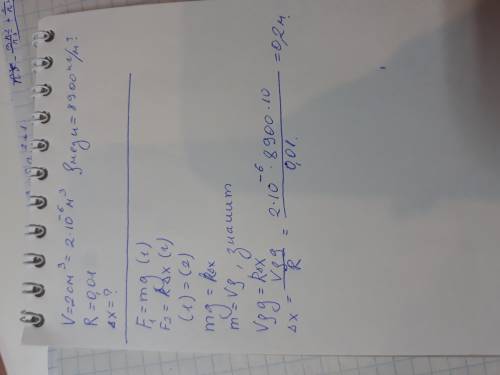 V=2см³=2·10⁻⁶м³ ρмеди=8900кг/м³
R=0,01
Δx=?
F₁=mg (1)
F₂=RΔx (2)
(1)=(2)
mg=RΔx
m=Vρ, значит
Vρg=RΔx
Δx=Vρg/R=2·10⁻⁶·8900·10/0,01=0,2м.